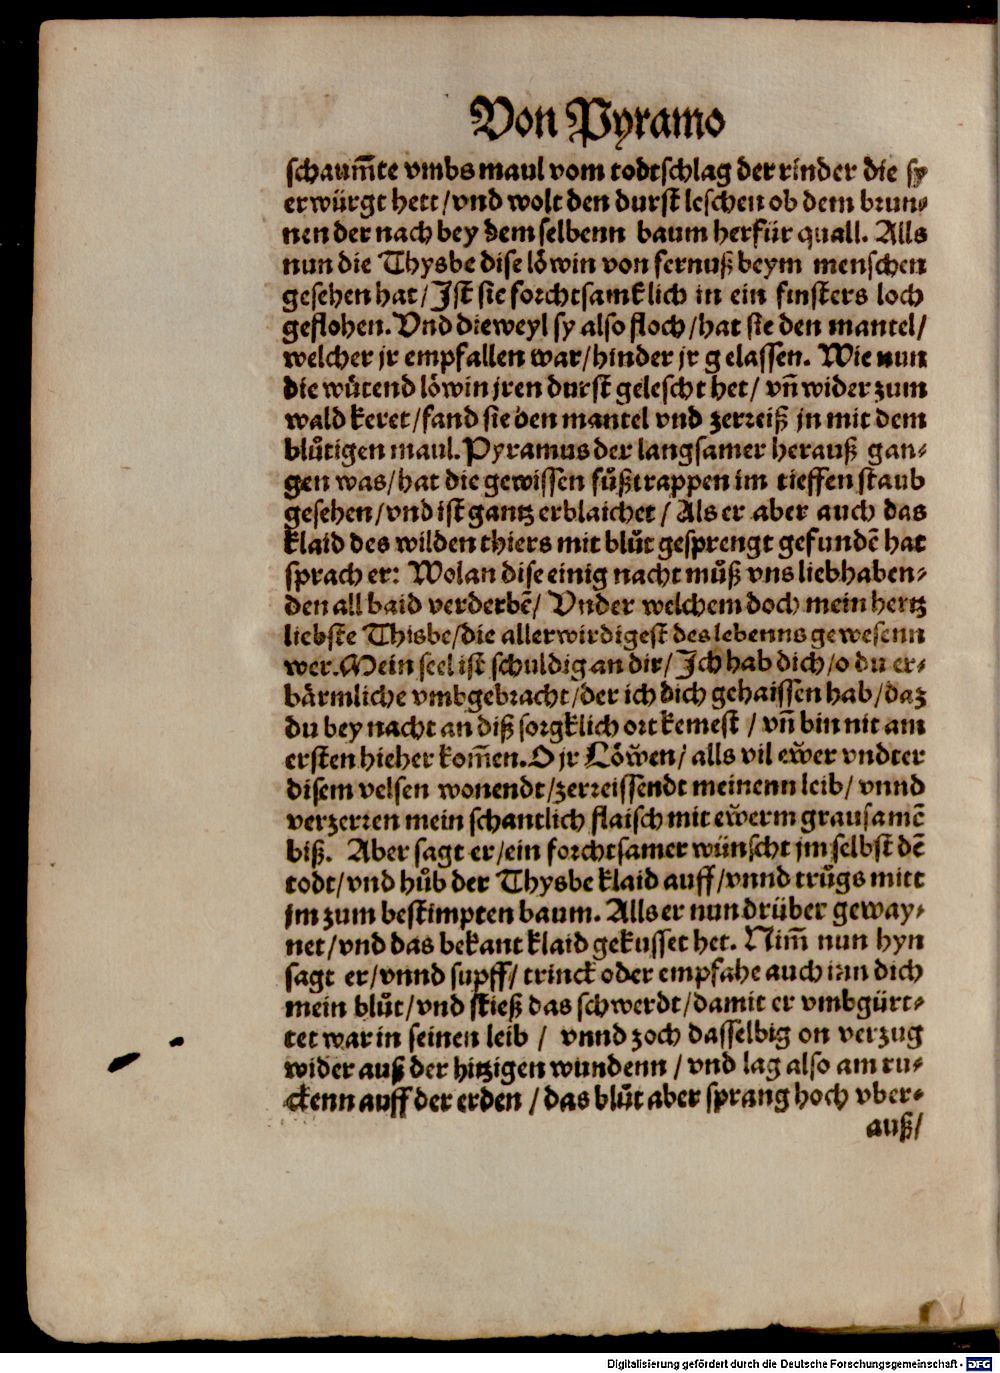 Von Pyramo
schaum̃te vmbs maul vom todtschlag der rinder die sy
erwürgt hett/vnd wolt den durst leschen ob dem brun⸗
nen der nach bey dem selbenn baum herfür quall. Alls
nun die Thysbe dise löwin von fernuß beym menschen
gesehen hat/Ist sie forchtsamklich in ein finsters loch
geflohen. Vnd dieweyl sy also floch/hat sie den mantel/
welcher jr empfallen war/hinder jr gelassen. Wie nun
die wůtend löwin jren durst gelescht het/ vñ wider zum
wald keret/fand sie den mantel vnd zerreiß jn mit dem
blůtigen maul. Pyramus der langsamer herauß gan⸗
gen was/hat die gewissen fůßtrappen im tieffen staub
gesehen/vnd ist gantz erblaichet/ Als er aber auch das
klaid des wilden thiers mit blůt gesprengt gefundẽ hat
sprach er: Wolan dise einig nacht můß vns liebhaben⸗
den all baid verderbẽ/ Vnder welchem doch mein hertz
liebste Thisbe/die allerwirdigest des lebenns gewesenn
wer. Mein seel ist schuldig an dir/ Ich hab dich/o du er⸗
bärmliche vmbgebracht/der ich dich gehaissen hab/daz
du bey nacht an diß sorgklich ort kemest/ vñ bin nit am
ersten hieher kom̃en. O jr Löwen/ alls vil ewer vndter
disem velsen wonendt/zerreissendt meinenn leib/ vnnd
verzerren mein schantlich flaisch mit ewerm grausamẽ
biß. Aber sagt er/ein forchtsamer wünscht jm selbst dẽ
todt/vnd hůb der Thysbe klaid auff/vnnd trůgs mitt
jm zum bestimpten baum. Alls er nun drüber geway⸗
net/vnd das bekant klaid gekusset het. Nim̃ nun hyn
sagt er/vnnd supff/ trinck oder empfahe auch inn dich
mein blůt/vnd stieß das schwerdt/damit er vmbgürt⸗
tet war in seinen leib/ vnnd zoch dasselbig on verzug
wider auß der hitzigen wundenn/vnd lag also am ru⸗
ckenn auff der erden/das blůt aber sprang hoch vber⸗
auß/
Digitalisierung gefördert durch die Deutsche Forschungsgemeinschaft - DFG